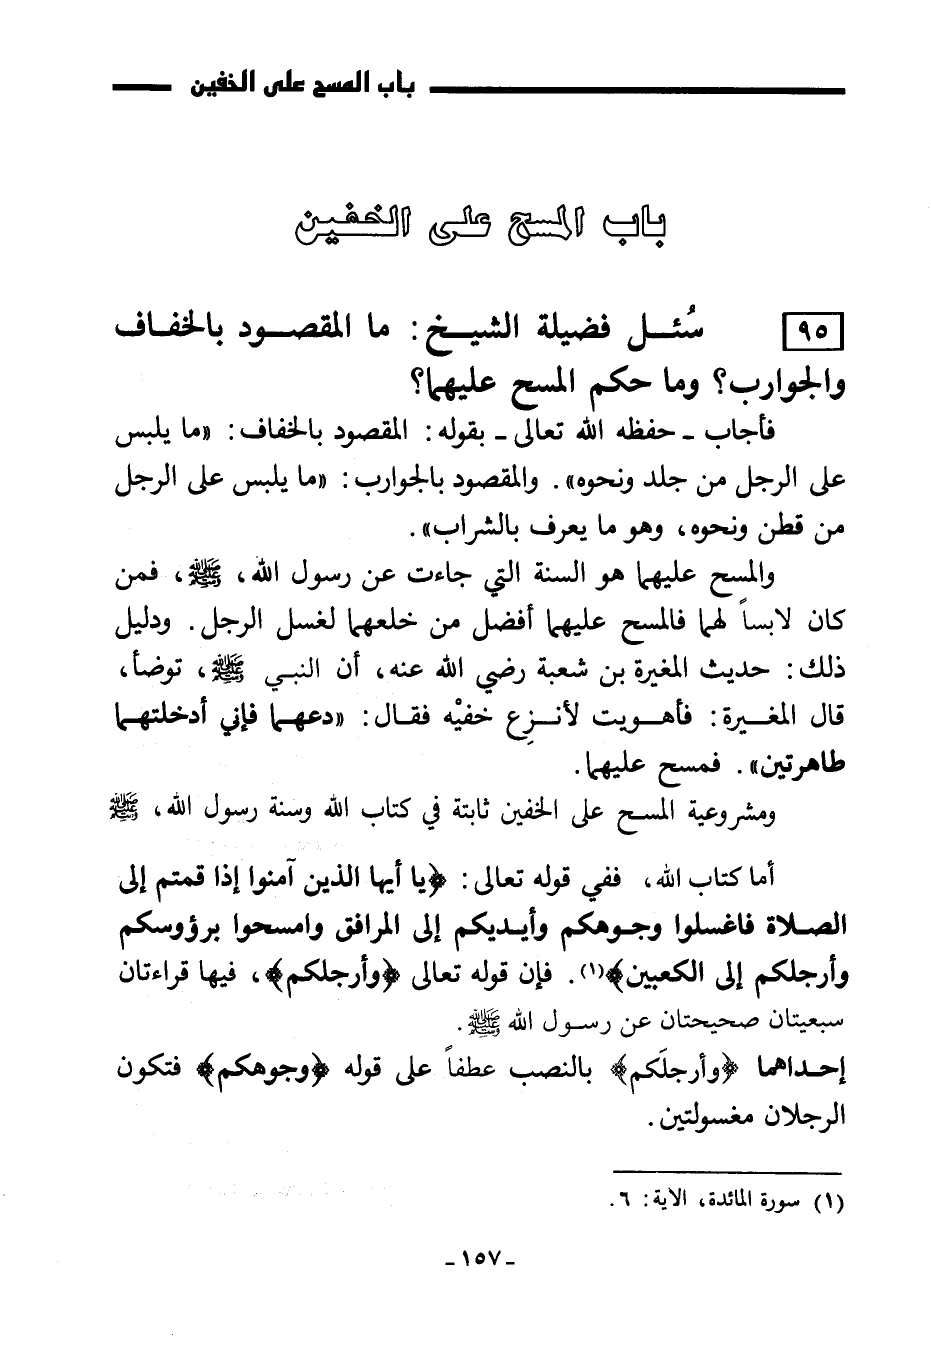 باب المسح على الخفين
باب المسح على الخفين
٩٥ سُئل فضيلة الشيخ: ما المقصود بالخفاف
والجوارب؟ وما حكم المسح عليهما؟
فأجاب ـ حفظه الله تعالى ـ بقوله: المقصود بالخفاف: «ما يلبس
على الرجل من جلد ونحوه». والمقصود بالجوارب: «ما يلبس على الرجل
من قطن ونحوه، وهو ما يعرف بالشراب».
والمسح عليهما هو السنة التي جاءت عن رسول الله، ﷺ، فمن
كان لابساً لهما فالمسح عليهما أفضل من خلعهما لغسل الرجل. ودليل
ذلك: حديث المغيرة بن شعبة رضي الله عنه، أن النبي ﷺ، توضأ،
قال المغيرة: فأهويت لأنزِع خفيْه فقال: «دعهما فإني أدخلتهما
طاهرتين». فمسح عليهما.
ومشروعية المسح على الخفين ثابتة في كتاب الله وسنة رسول الله، ﷺ
أما كتاب الله، ففي قوله تعالى: ﴿يا أيها الذين آمنوا إذا قمتم إلى
الصلاة فاغسلوا وجوهكم وأيديكم إلى المرافق وامسحوا برؤوسكم
وأرجلكم إلى الكعبين﴾(١). فإن قوله تعالى ﴿وأرجلكم﴾، فيها قراءتان
سبعيتان صحيحتان عن رسول الله ﷺ.
إحداهما ﴿وأرجلَكم﴾ بالنصب عطفاً على قوله ﴿وجوهكم﴾ فتكون
الرجلان مغسولتين.
(١) سورة المائدة، الاية: ٦.
ـ ١٥٧ ـ